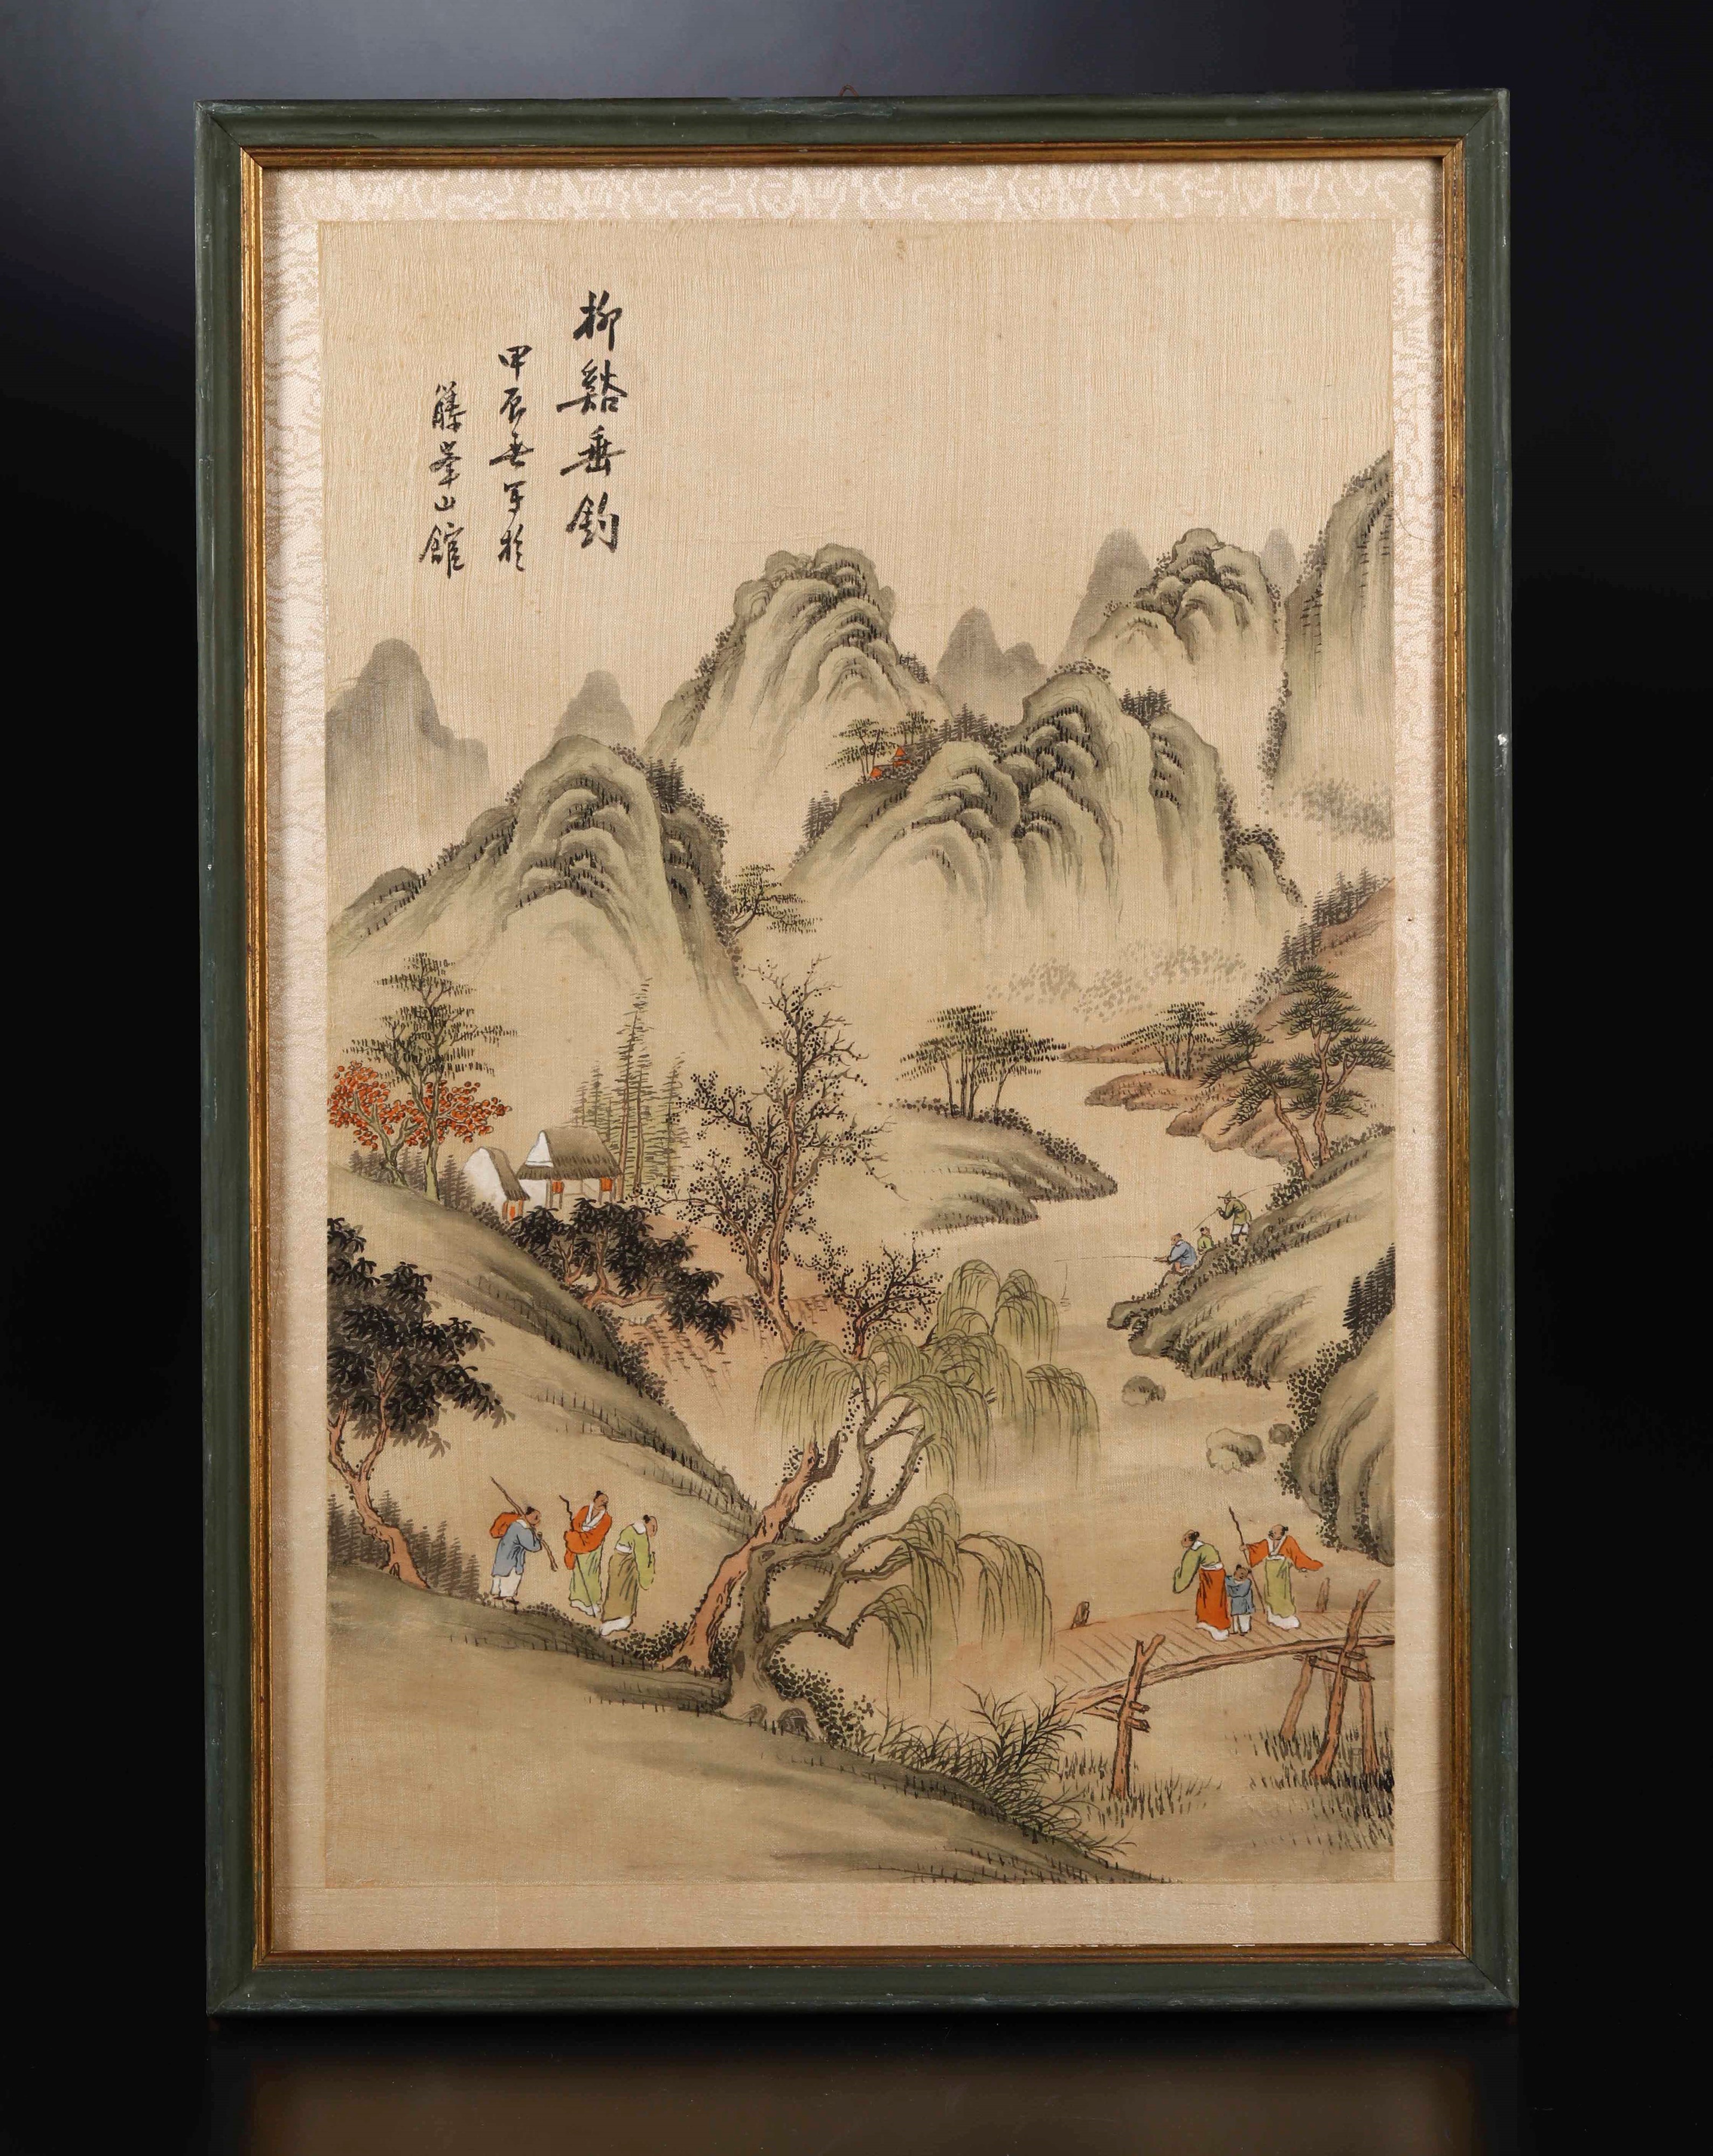 柳谿垂釣
甲辰春写於
籐峯山館